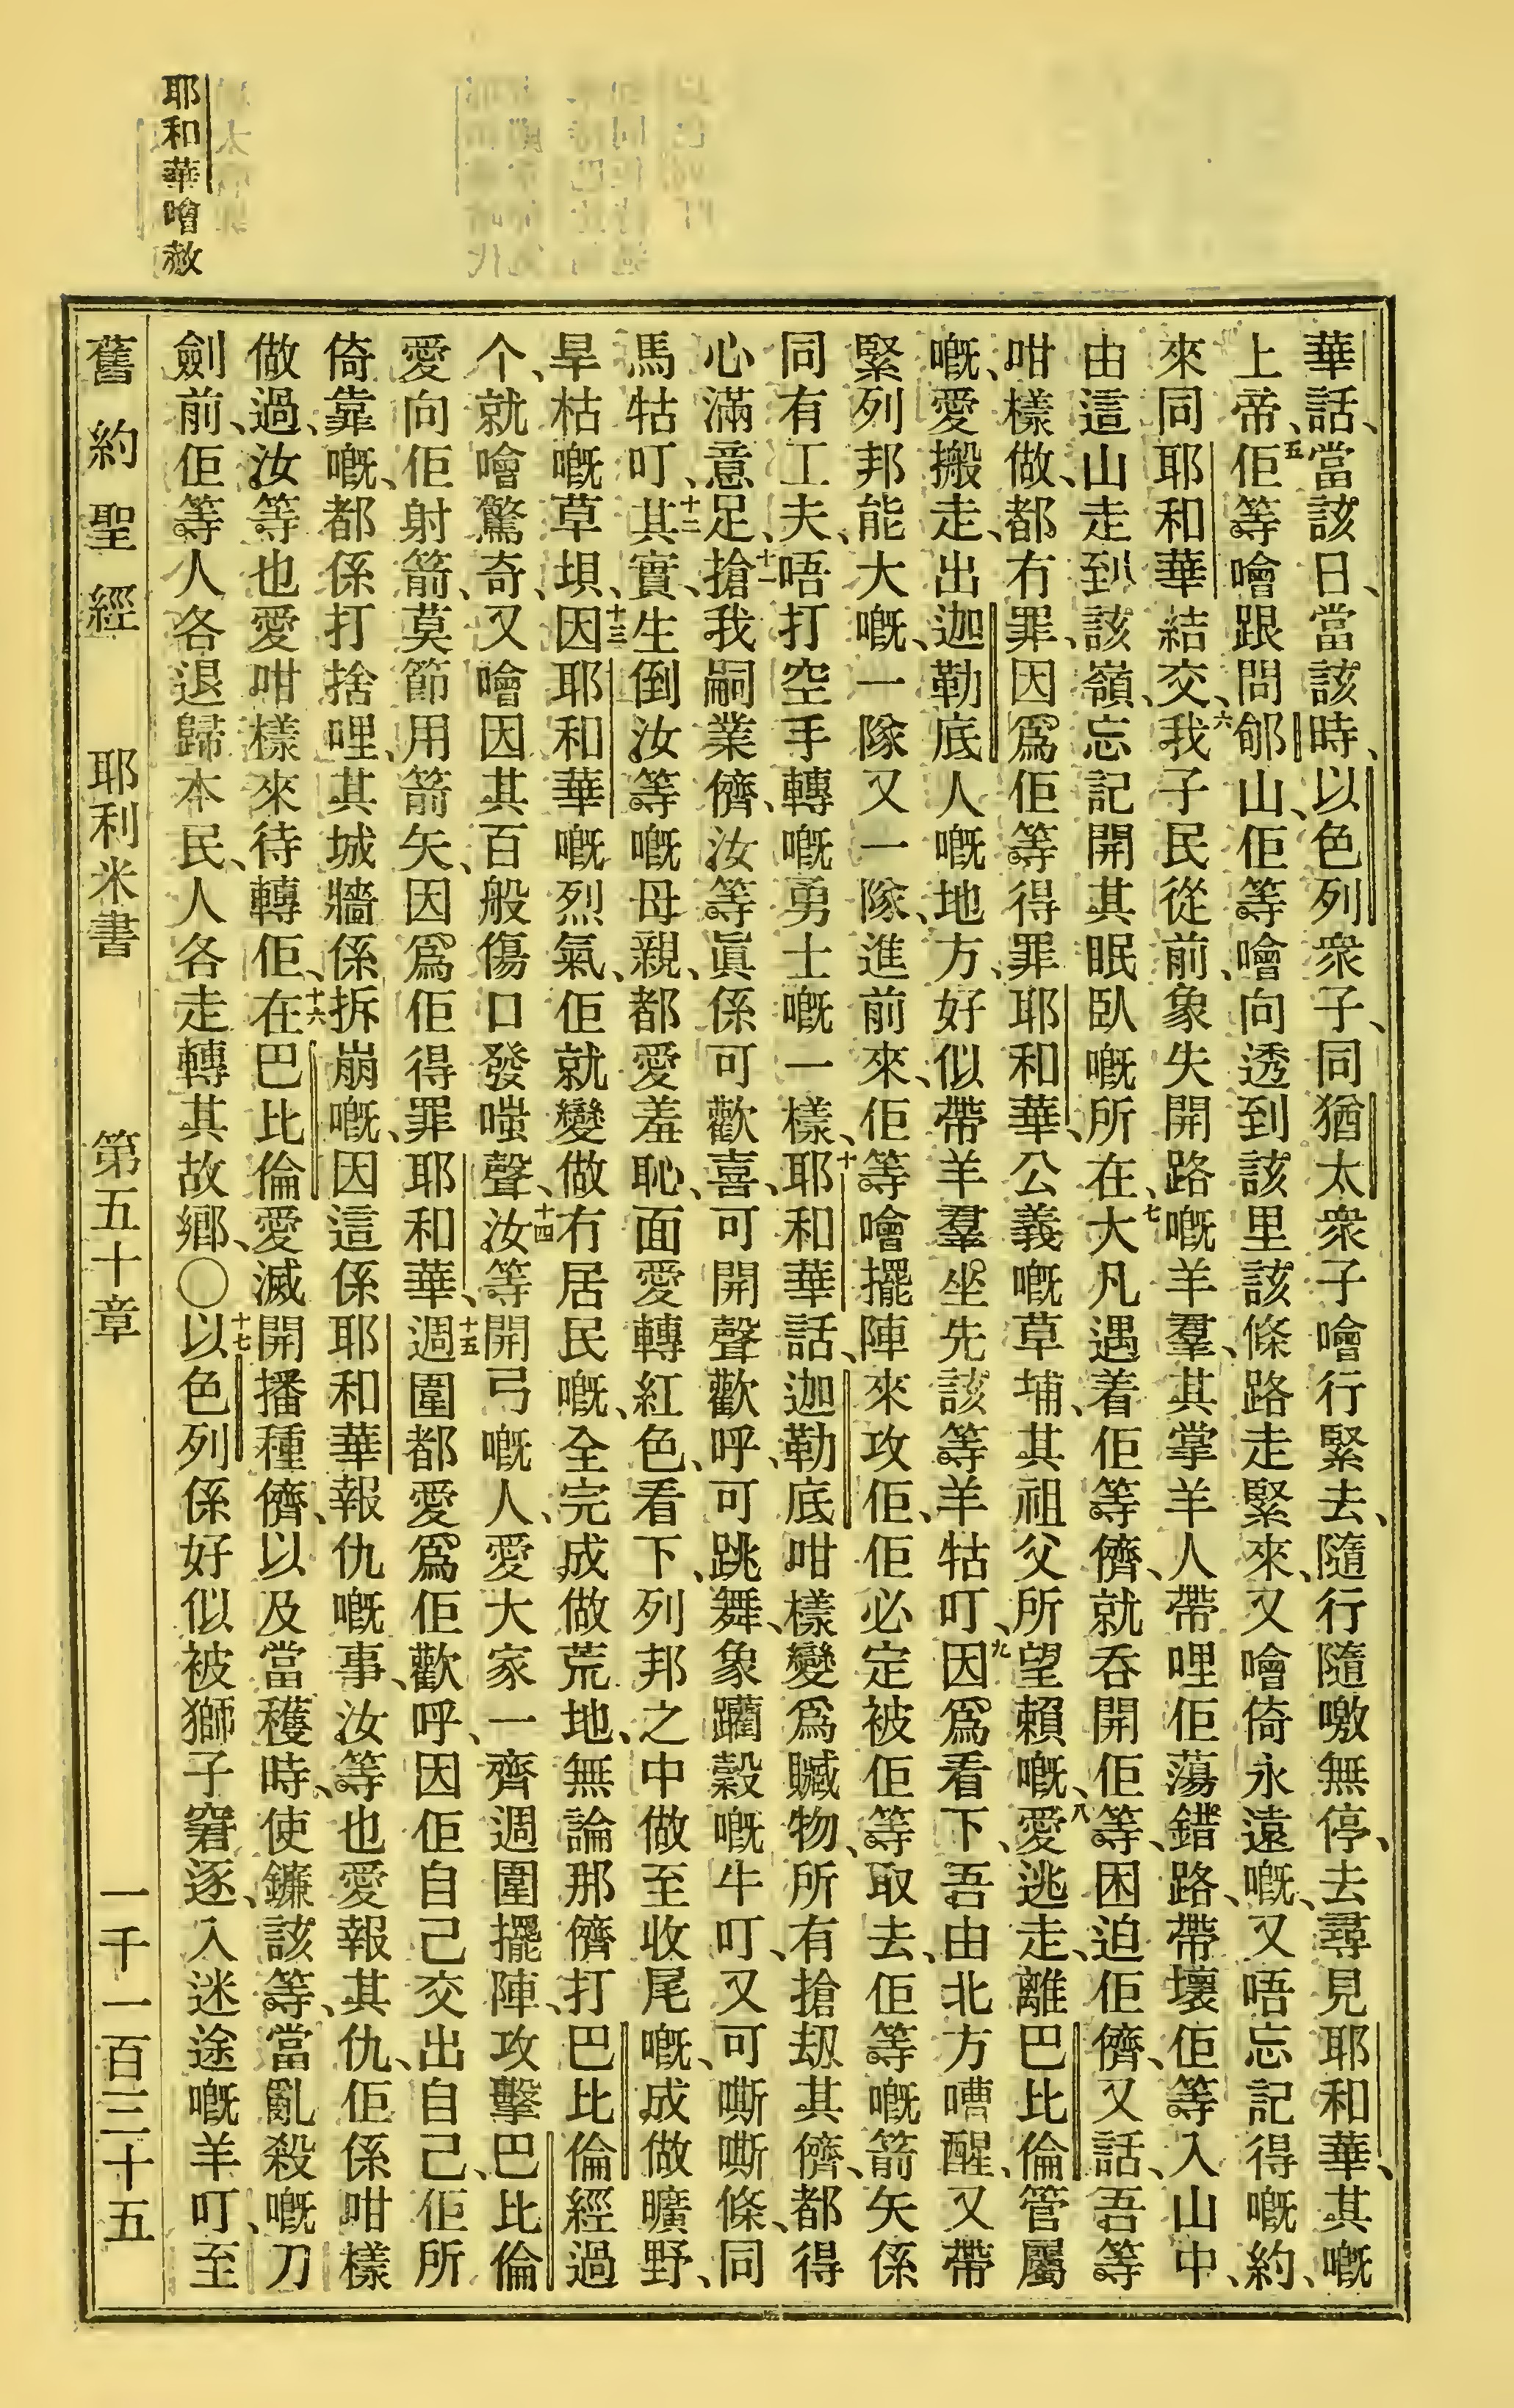 耶和華噲赦
華話、當該日、當該時、以色列衆子、同猶太衆子噲行緊去、隨行隨噭無停、去尋見耶和華、其嘅
上帝、五佢等噲跟問郇山、佢等噲向透到該里該條路走緊來、又噲倚永遠嘅、又唔忘記得嘅約、
來同耶和華結交、六我子民從前、象失開路嘅羊羣、其掌羊人帶哩佢蕩錯路、帶壞佢等入山中、
由這山走到該嶺、忘記開其眠臥嘅所在、七大凡遇着佢等儕、就吞開佢等、困迫佢儕、又話、吾等
咁樣做、都冇罪、因爲佢等得罪耶和華、公義嘅草埔、其祖父所望賴嘅、八愛逃走、離巴比倫管屬
嘅、愛搬走、出迦勒底人嘅地方、好似帶羊羣坐先該等羊牯叮、九因爲看下、吾由北方嘈醒、又帶
緊列邦能大嘅、一隊又一隊、進前來、佢等噲擺陣來攻佢、佢必定被佢等取去、佢等嘅箭矢係
同有工夫、唔打空手轉嘅勇士嘅一樣、十耶和華話、迦勒底咁樣變爲贓物、所有搶刼其儕、都得
心滿意足、十一搶我嗣業儕、汝等眞係可歡喜、可開聲歡呼、可跳舞、象躪穀嘅牛叮、又可嘶嘶條、同
馬牯叮、十二其實、生倒汝等嘅母親、都愛羞恥、面愛轉紅色、看下、列邦之中做至收尾嘅、成做曠野、
旱枯嘅草埧、十三因耶和華嘅烈氣、佢就變做冇居民嘅、全完成做荒地、無論那儕打巴比倫經過
个、就噲驚奇、又噲因其百般傷口發嗤聲、十四汝等開弓嘅人、愛大家一齊週圍擺陣、攻擊巴比倫
愛向佢射箭、莫節用箭矢、因爲佢得罪耶和華、十五週圍都愛爲佢歡呼、因佢自己交出自己、佢所
倚靠嘅、都係打捨哩、其城牆係拆崩嘅、因這係耶和華報仇嘅事、汝等也愛報其仇、佢係咁樣
做過、汝等也愛咁樣來待轉佢、十六在巴比倫愛滅開播種儕、以及當穫時、使鐮該等、當亂殺嘅刀
劍前、佢等人各退歸本民、人各走轉其故鄉、〇十七以色列係好似被獅子窘逐、入迷途嘅羊叮、至
舊約聖經 耶利米書 第五十章 一千一百三十五